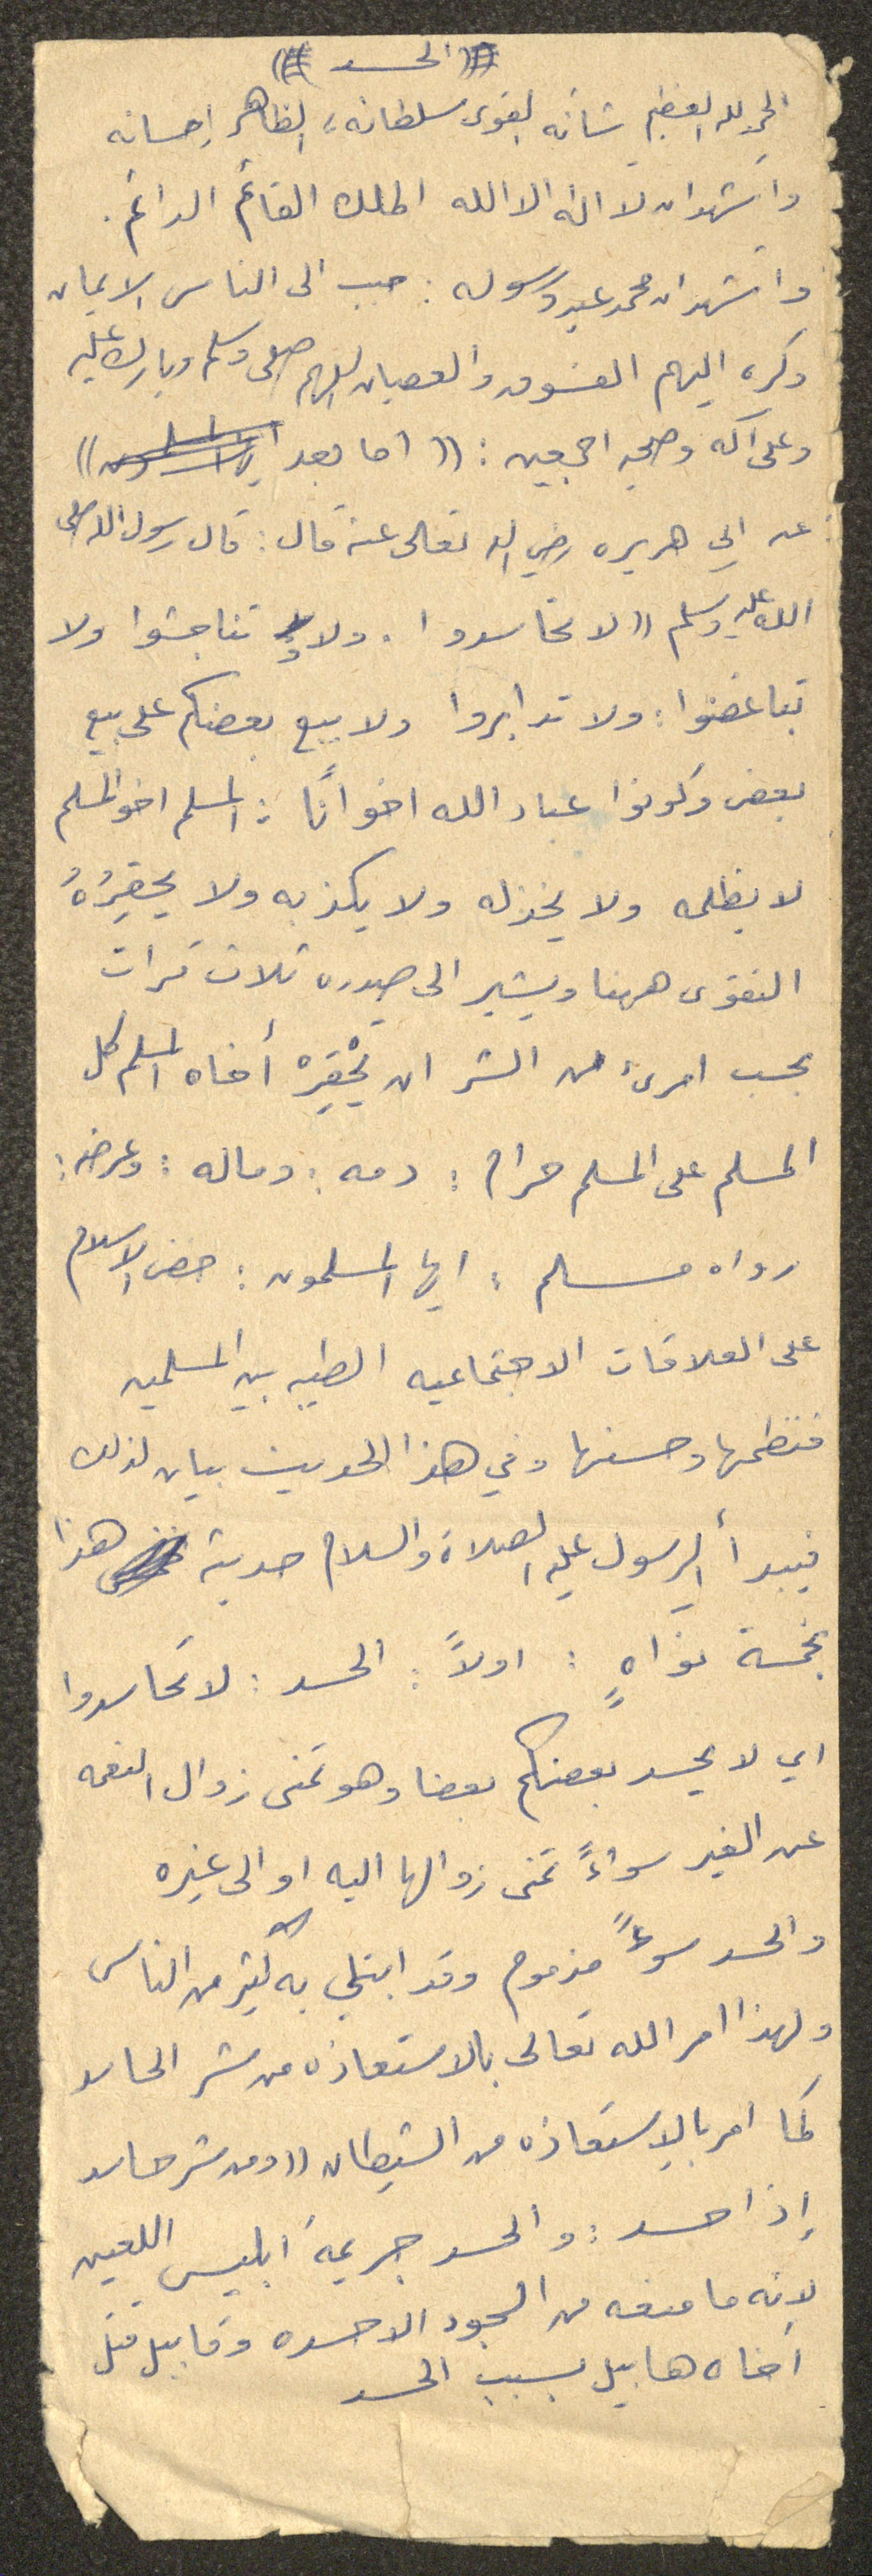 ((الحسد))
الحمد لله العظيم شانه القوى سلطانه، الظاهر إحسانه
واشهد ان لا اله الا الله الملك القائم الدائم.
واشهد ان محمد عبد ورسوله : حبب الى الناس الايمان
وكره اليهم الفسوق والعصيان اللهم صلى وسلم وبارك عليه
وعلى آله وصحبه اجمعين : (( اما بعد ))
عن ابي هريره رضي الله تعالى عنه قال : قال رسول الله صلى
الله عليه وسلم (( لا تحاسدوا . ولا تناجشوا ولا
تباغضوا : ولا تدابروا ولا يبع بعضكم على بيع
بعض وكونوا عباد الله اخوانًا : المسلم اخو المسلم
لا يظلمه ولا يخذله ولا يكذبه ولا يحقِرُهُ
التقوى ههنا ويشير الى صدره ثلاث مرات
بحسب امرىء من الشر ان يَحْقِرَه أخاه المسلم كل
المسلم على المسلم حرام : دمه : وماله : وعرضه :
رواه مسلم : ايها المسلمون : حض الاسلام
على العلاقات الاجتماعيه الطيبه بين المسلمين
فنظمها وحسنها وفي هذا الحديث بيان لذلك
فيبدأ الرسول عليه الصلاة والسلام حديثه هذا
بخمسة نواهٍ : اولاً : الحسد : لا تحاسدوا
اي لا يحسد بعضكم بعضا وهو تمنى زوال النعمه
عن الغير سواءً تمنى زوالها اليه او الى غيره
والحسد سوءً مذموم وقد ابتلي به كثير من الناس
ولهذا امر الله تعالى بالاستعاذه من شر الحاسد
كما امر بالإستعاذه من الشيطان (( ومن شر حاسد
إذا حسد : والحسد جريمة ابليس اللعين
لانه ما منعه من السجود الا حسده وقابيل قتل
اخاه هابيل بسبب الحسد